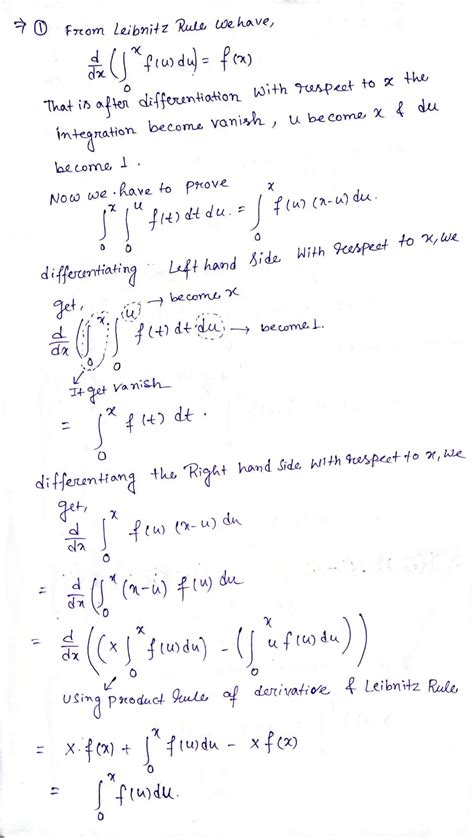 ⇒ ① From Leibnitz Rule we have,
d/dx (∫₀ˣ f(u) du) = f(x)
That is after differentiation with respect to x the
integration become vanish, u become x & du
become 1.
Now we have to prove
∫₀ˣ ∫₀ᵘ f(t) dt du. = ∫₀ˣ f(u) (x-u) du.
differentiating Left hand side with respect to x, we
get,
(u) → become x
d/dx (∫₀ˣ ∫₀ᵘ f(t) dt du → become 1.
It get vanish
= ∫₀ˣ f(t) dt.
differentiang the Right hand side with respect to x, we
get,
d/dx ∫₀ˣ f(u) (x-u) du
= d/dx (∫₀ˣ (x-u) f(u) du
= d/dx ((x ∫₀ˣ f(u) du) - (∫₀ˣ u f(u) du))
using product rule of derivative & Leibnitz Rule
= x. f(x) + ∫₀ˣ f(u) du - x f(x)
= ∫₀ˣ f(u) du.